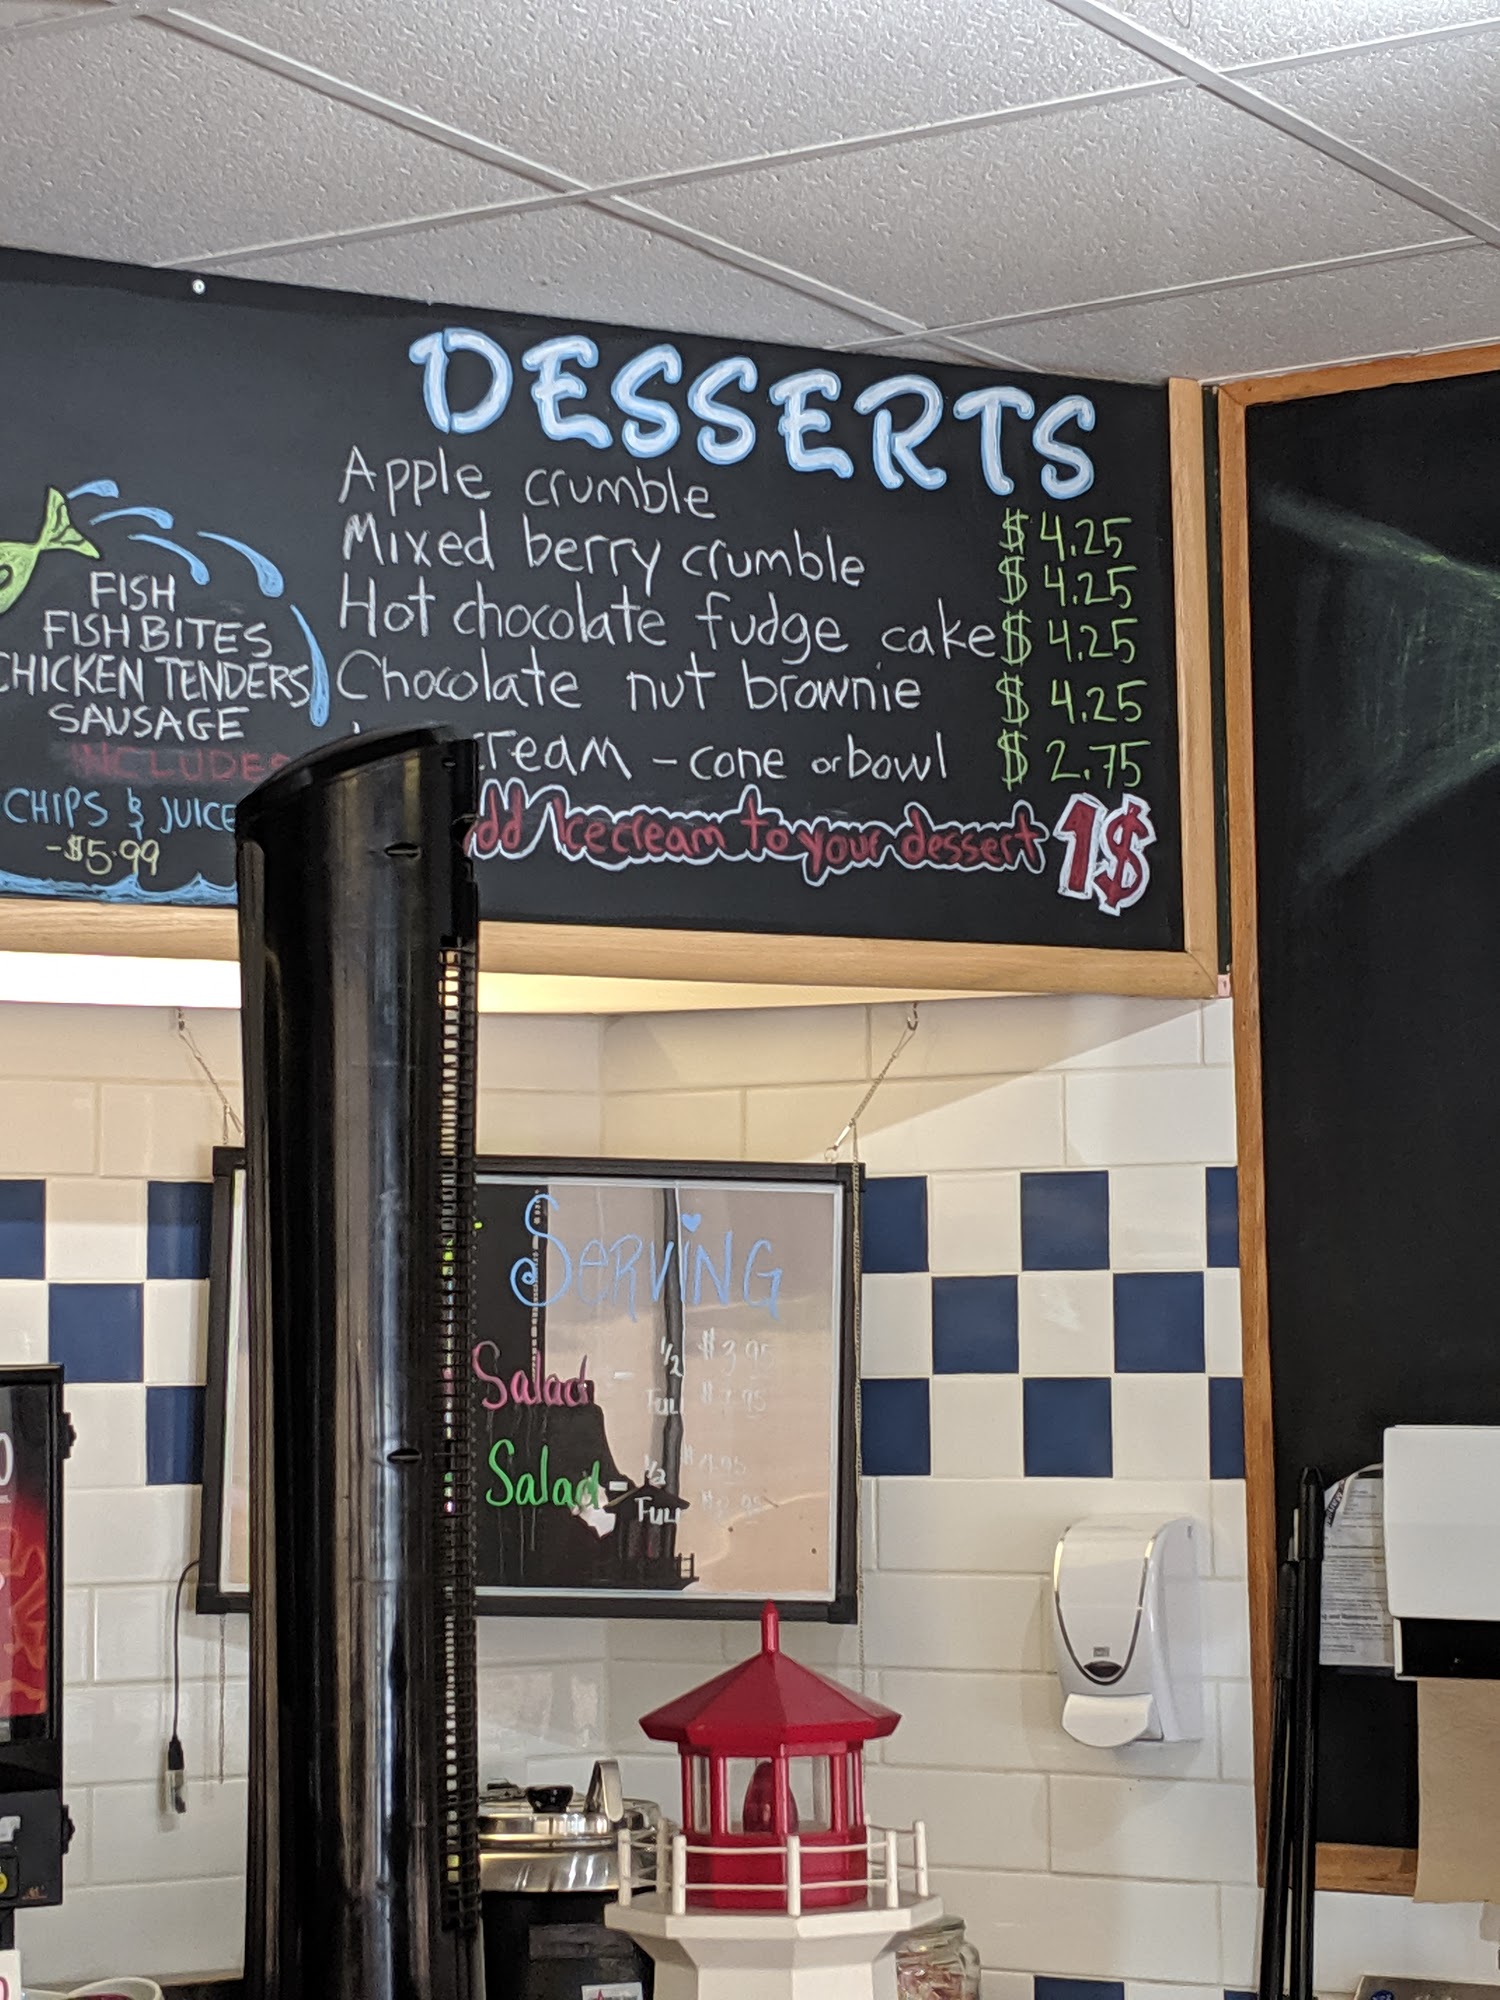 DESSERTS
Apple crumble $4.25
Mixed berry crumble $4.25
Hot chocolate fudge cake $4.25
Chocolate nut brownie $4.25
cream - cone or bowl $2.75
Add Icecream to your dessert 1$
FISH
FISH BITES
CHICKEN TENDERS
SAUSAGE
INCLUDES
CHIPS & JUICE
-$5.99
SERVING
Salad - 1/2 $3.95
FULL $7.95
Salad - 1/2
FULL